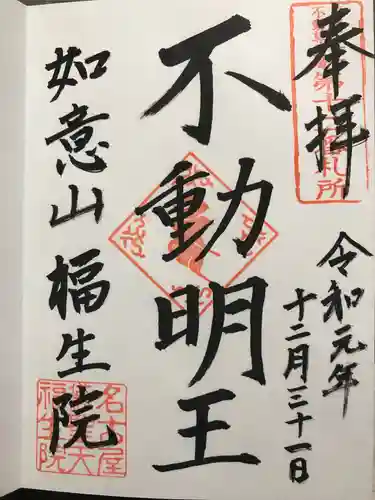 奉拝
令和元年
十二月三十一日
不動明王
如意山福生院
名古屋
福生院
札所